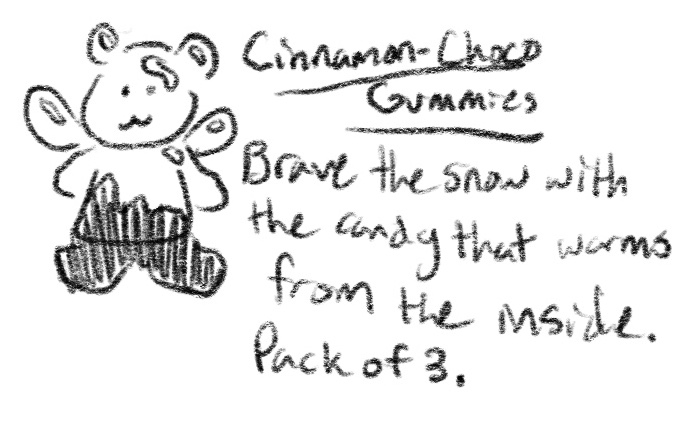 Cinnamon-Choco
Gummies
Brave the snow with
the candy that warms
from the inside.
Pack of 3.